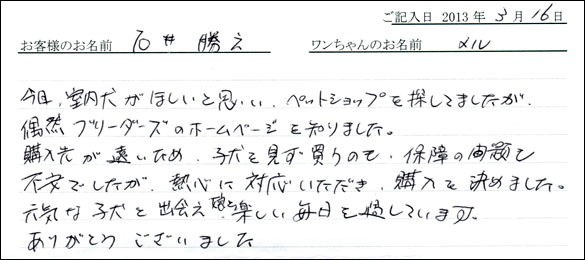 ご記入日 2013 年 3 月 16 日
お客様のお名前 石井 勝え ワンちゃんのお名前 メル
今回、室内犬がほしいと思い、ペットショップを探してましたが、
偶然ブリーダーズのホームページを知りました。
購入先が遠いため、子犬を見ず買うので、保障の問題で
不安でしたが、熱心に対応いただき、購入を決めました。
元気な子犬と出会え 楽しい毎日を過しています。
ありがとうございました